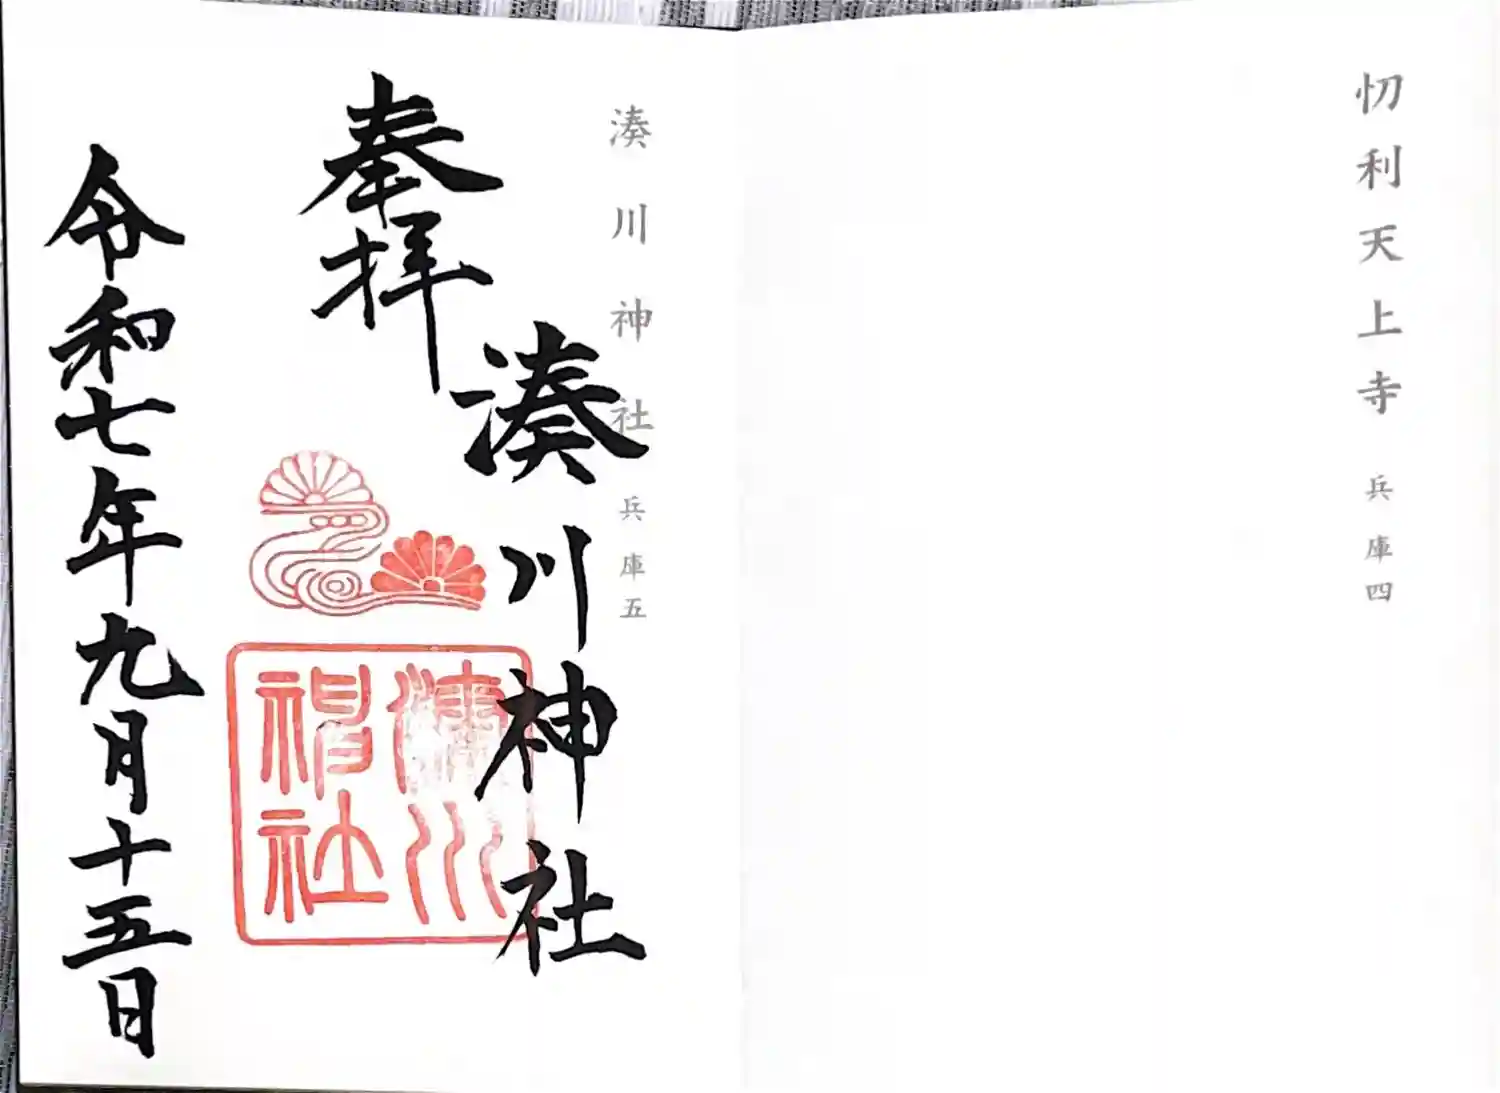 忉利天上寺 兵庫四
湊川神社 兵庫五
奉拝
湊川神社
湊川神社
令和七年九月十五日